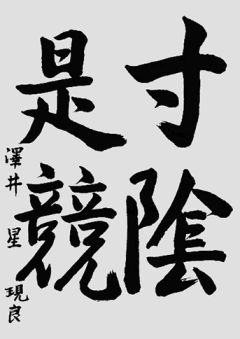 寸陰
是競
澤井 星 現良